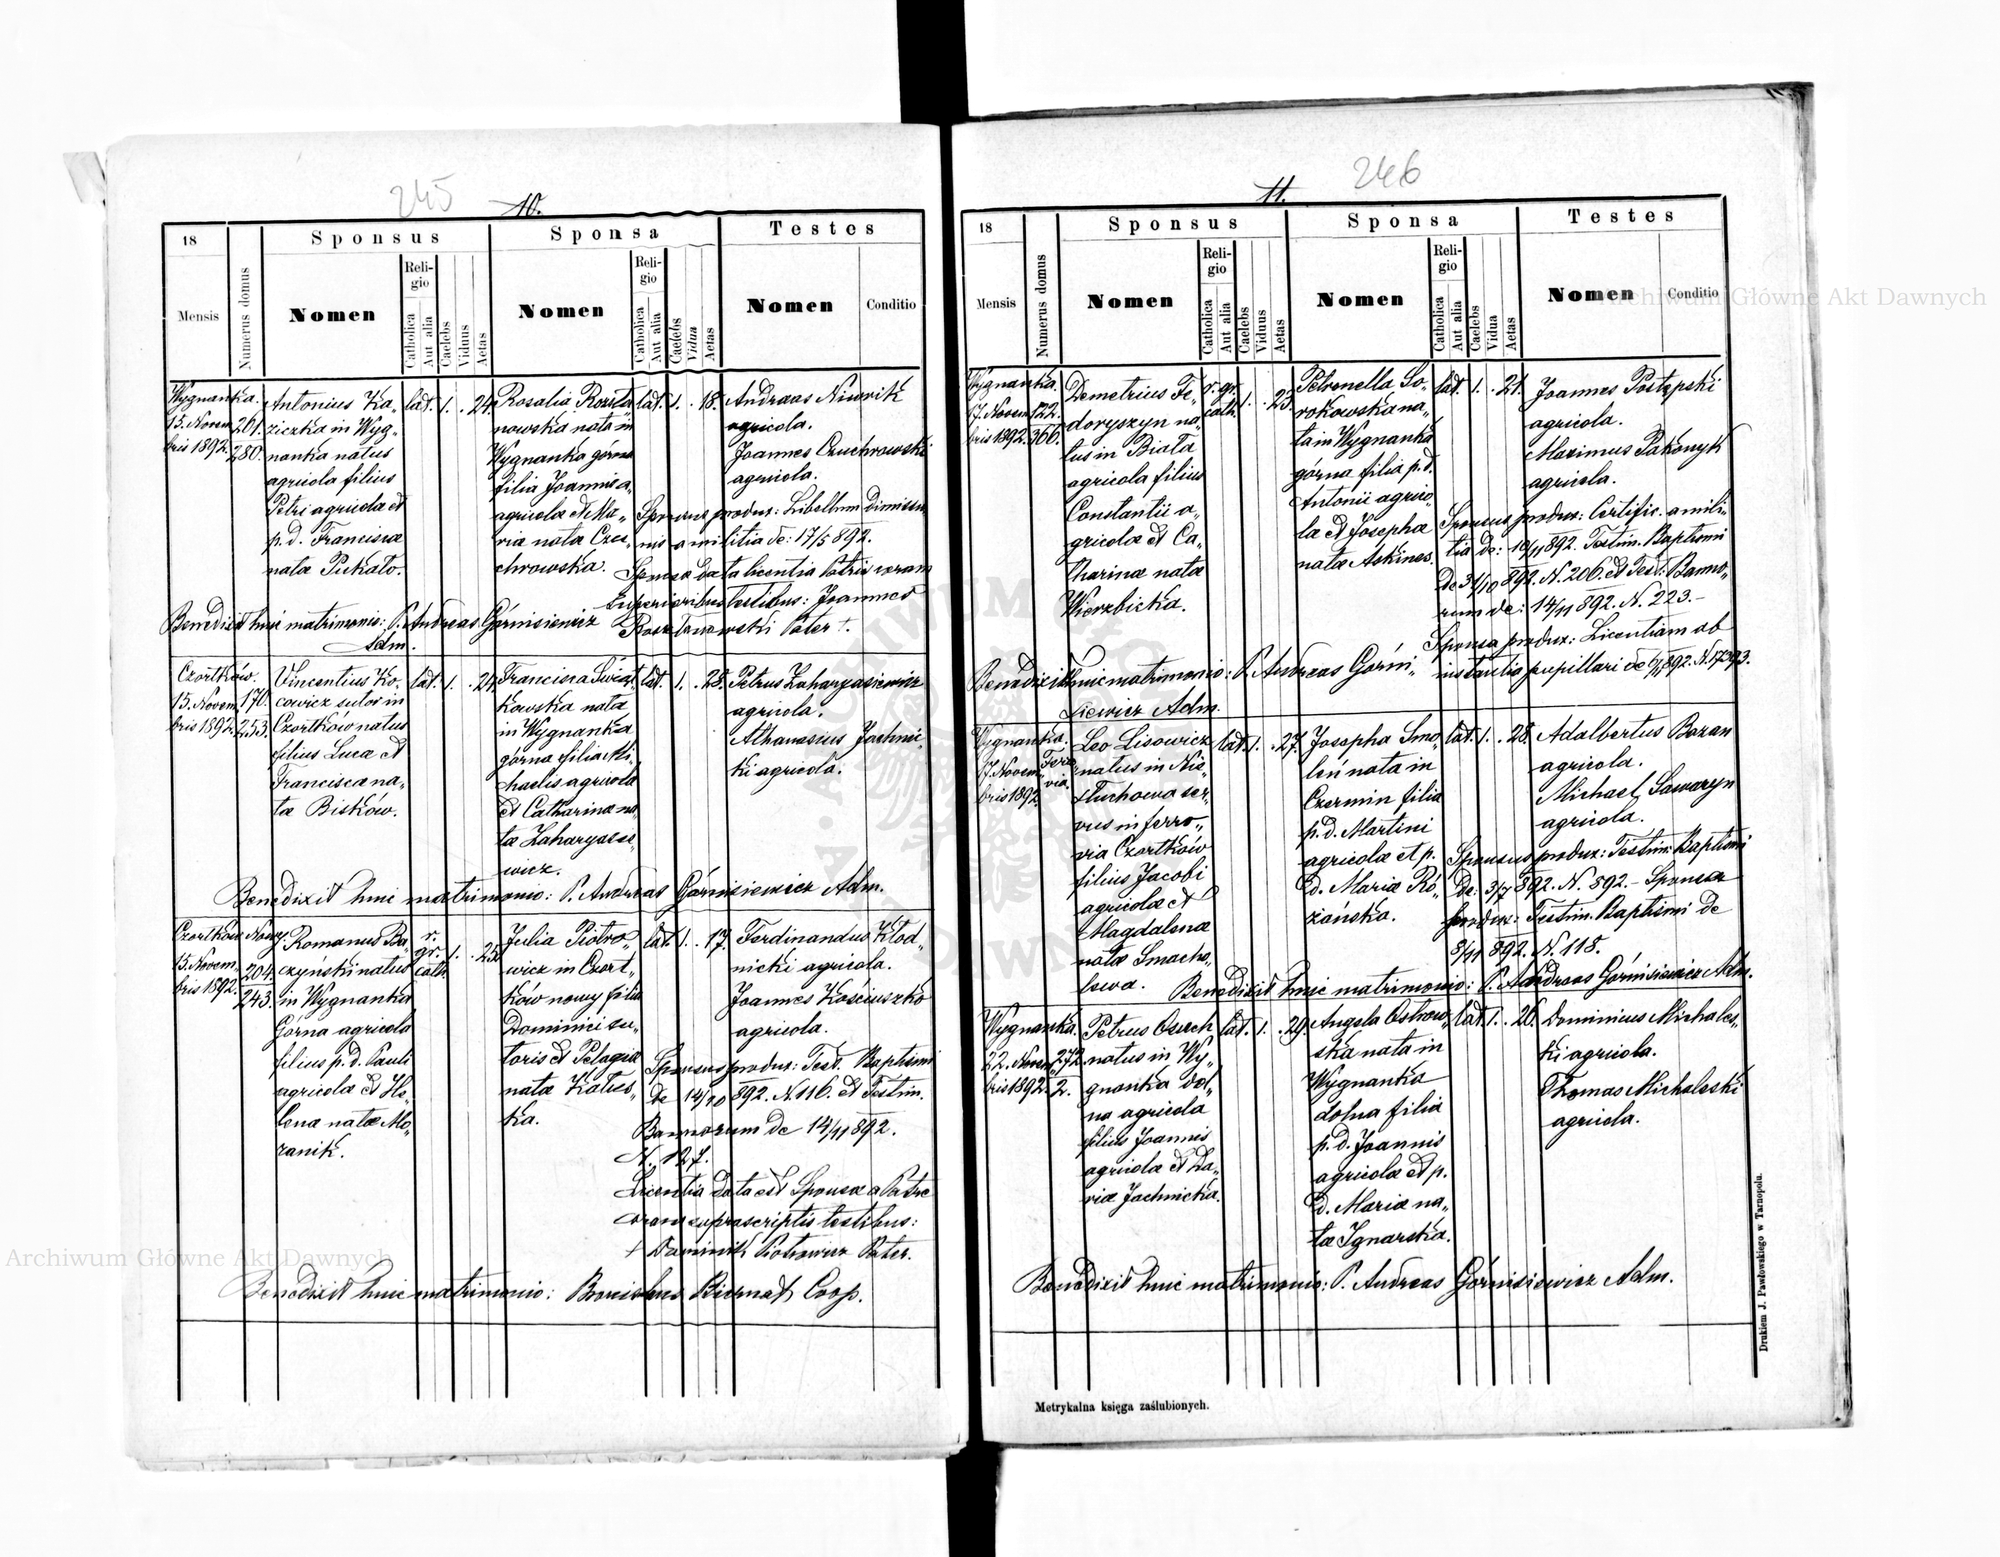 245
10.
18
Sponsus
Sponsa
Testes
Mensis
Numerus domus
Nomen
Religio
Catholica
Aut alia
Caelebs
Viduus
Aetas
Nomen
Religio
Catholica
Aut alia
Caelebs
Vidua
Aetas
Nomen
Conditio
Wygnanka.
15. Novem
bris 1892.
201.
280.
Antonius Ka„
ziczka in Wyg„
nanka natus
agricola filius
Petri agricolæ et
p. d. Francisca
nata Pukało.
lat. 1. . 24.
Rosalia Rozsta„
nowska nata in
Wygnanka górna
filia Joannis a„
agricolæ et Ma„
ria nata Czu„
chrowska.
lat. 1. . 18.
Andreas Niwrik
agricola.
Joannes Czuchrowski
agricola.
Sponsus produx: Libellum dimissio
nis a militia de: 17/5 892.
Sponsa data licentia Patris coram
superioribus testibus: Joannes
Rosztanowski Pater †.
Benedixit huic matrimonio: P. Andreas Górnisiewicz
Adm.
Czortków.
15. Novem
bris 1892.
170.
253.
Vincentius Ko„
cowicz sutor in
Czortków natus
filius Luca et
Francisca na„
tæ Bisków.
lat. 1. . 24.
Francisca Świąt
kowska nata
in Wygnanka
górna filia Mi„
chaelis agricola
et Catharina na„
tæ Zaharyasie„
wicz.
lat. 1. . 28.
Petrus Zaharyasiewicz
agricola.
Athanasius Jachnic„
ki agricola.
Benedixit huic matrimonio: P. Andreas Górnisiewicz Adm.
Czortków Nowy
15. Novem„
bris 1892.
204.
243.
Romanus Ba„
czyński natus
in Wygnanka
Górna agricola
filius p. d. Pauli
agricolæ et He„
lena natæ Mo„
zanik.
r.
gr.
cath.
1. . 25.
Julia Piotro„
wicz in Czort„
ków nowy filia
Dominici su„
toris et Pelagia
nata Katus„
ka.
lat. 1. . 17.
Ferdinandus Kłod„
nicki agricola.
Joannes Kościuszko
agricola.
Sponsus produx: Test. Baptismi
de 14/10 892. N. 116. et Testim.
Bannorum de 14/11 892.
N. 127.
Licentia data est Sponsæ a Patre
coram suprascriptis testibus:
† Dominik Piotrowicz Pater.
Benedixit huic matrimonio: Biernat Coop.
246
11.
18
Sponsus
Sponsa
Testes
Mensis
Numerus domus
Nomen
Religio
Catholica
Aut alia
Caelebs
Viduus
Aetas
Nomen
Religio
Catholica
Aut alia
Caelebs
Vidua
Aetas
Nomen
Conditio
Wygnanka.
17. Novem
bris 1892.
122.
366.
Demetrius Fe„
doryszyn na„
tus in Biała
agricola filius
Constantii a„
gricolæ et Ca„
tharinæ natæ
Wierzbicka.
r. gr.
cath.
1. . 23.
Petronella So„
rokowska na„
ta in Wygnanka
górna filia p. d.
Antonii agrico„
læ et Josepha
nata Askines.
lat. 1. . 21.
Joannes Postępski
agricola.
Maximus Pakonyk
agricola.
Sponsus produx: Certific. a mili„
tia de: 10/11 892. Testim. Baptismi
de 31/10 892. N. 206. et Test: Banno„
rum de: 14/11 892. N. 223.-
Sponsa produx: Licentiam ab
instantia pupillari de 892. N. 17393.
Benedixit huic matrimonio: P. Andreas Górni„
siewicz Adm.
Wygnanka.
17. Novem„
bris 1892.
Ferro„
via.
Leo Lisowicz
natus in Nis„
tuchowa ser„
vus in ferro„
via Czortków
filius Jacobi
agricolæ et
Magdalena
natæ Smacho„
lowa.
lat. 1. . 27.
Josepha Smo„
leń nata in
Czermin filia
p. d. Martini
agricolæ et p.
d. Mariæ Ró„
żańska.
lat. 1. . 28.
Adalbertus Baran
agricola.
Michael Sawaryn
agricola.
Sponsus produx: Testim: Baptismi
de: 3/7 892. N. 892.- Sponsa
produx: Testim. Baptismi de
8/11 892. N. 118.
Benedixit huic matrimonio: P. Andreas Górnisiewicz Adm.
Wygnanka.
22. Novem„
bris 1892.
272.
2.
Petrus Oserch
natus in Wy„
gnanka dol„
na agricola
filius Joannis
agricolæ et Da„
ria Jachnicka.
lat. 1. . 29.
Angela Ostrow„
ska nata in
Wygnanka
dolna filia
p. d. Joannis
agricolæ et p.
d. Mariæ na„
tæ Ignarska.
lat. 1. . 26.
Dominicus Michales„
ki agricola.
Thomas Michaleski
agricola.
Benedixit huic matrimonio: P. Andreas Górnisiewicz Adm.
Metrykalna księga zaślubionych.
Drukiem J. Pawłowskiego w Tarnopolu.
Archiwum Główne Akt Dawnych
Archiwum Główne Akt Dawnych